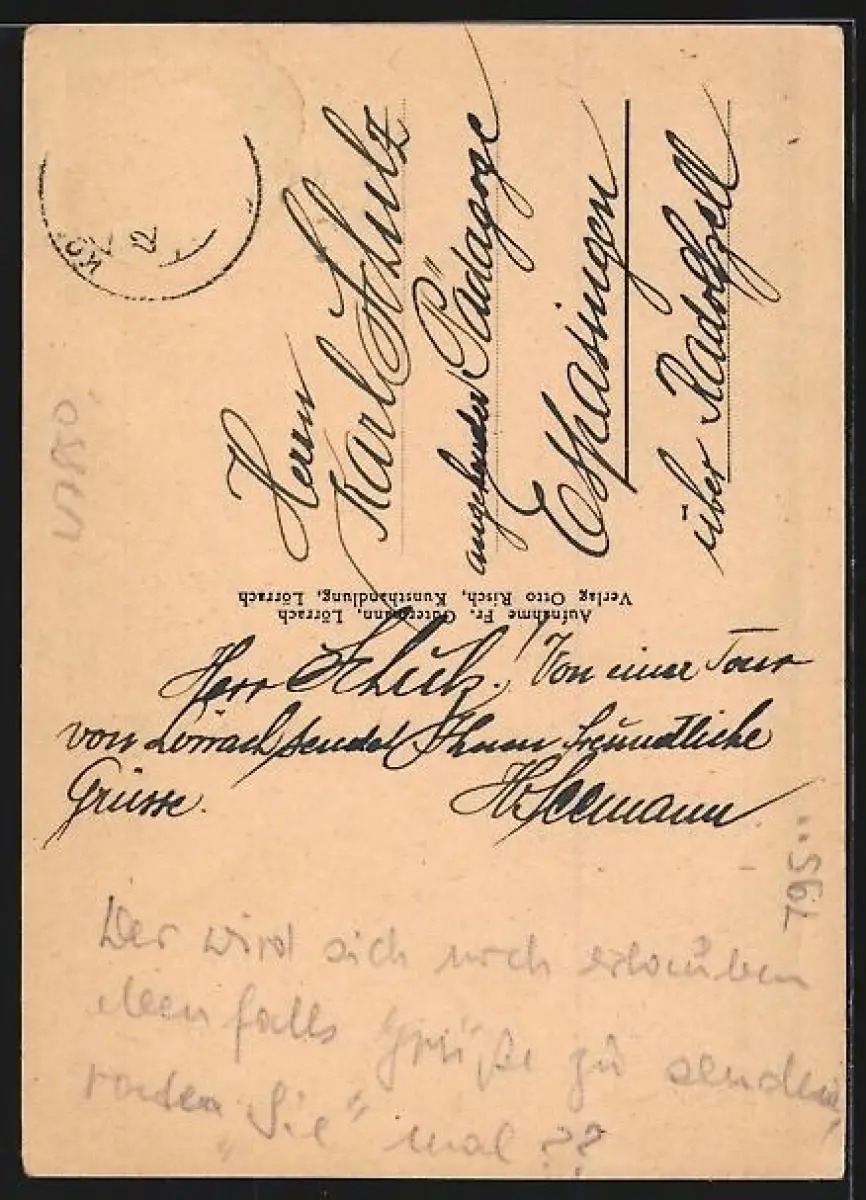 Herrn
Karl Schulz
angehender Pädagoge
Espasingen
über Radolfzell
Aufnahme Fr. Gutermann, Lörrach
Verlag Otto Risch, Kunsthandlung, Lörrach
Herr Schulz! Von einer Tour
von Lörrach sendet Ihnen freundliche
Grüsse. H. Seemann
Wer wird sich noch erlauben
ebenfalls "Grüße zu senden,
raten "Sie" mal??
795